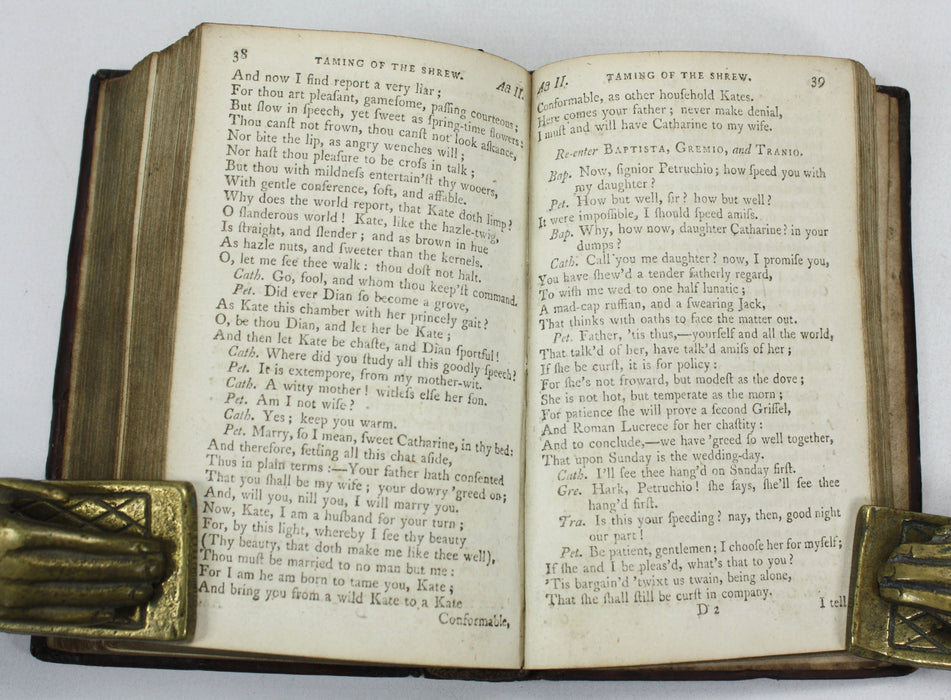 38 TAMING OF THE SHREW. Act II.
And now I find report a very liar;
For thou art pleaſant, gameſome, paſſing courteous;
But ſlow in ſpeech, yet ſweet as ſpring-time flowers:
Thou canſt not frown, thou canſt not look aſcance,
Nor bite the lip, as angry wenches will;
Nor haſt thou pleaſure to be croſs in talk;
But thou with mildneſs entertain'ſt thy wooers,
With gentle conference, ſoft, and affable.
Why does the world report, that Kate doth limp?
O ſlanderous world! Kate, like the hazle-twig,
Is ſtraight, and ſlender; and as brown in hue
As hazle nuts, and ſweeter than the kernels.
O, let me ſee thee walk: thou doſt not halt.
Cath. Go, fool, and whom thou keep'ſt command.
Pet. Did ever Dian ſo become a grove,
As Kate this chamber with her princely gait?
O, be thou Dian, and let her be Kate;
And then let Kate be chaſte, and Dian ſportful!
Cath. Where did you ſtudy all this goodly ſpeech?
Pet. It is extempore, from my mother-wit.
Cath. A witty mother! witleſs elſe her ſon.
Pet. Am I not wiſe?
Cath. Yes; keep you warm.
Pet. Marry, ſo I mean, ſweet Catharine, in thy bed:
And therefore, ſetting all this chat aſide,
Thus in plain terms:—Your father hath conſented
That you ſhall be my wife; your dowry 'greed on;
And, will you, nill you, I will marry you.
Now, Kate, I am a huſband for your turn;
For, by this light, whereby I ſee thy beauty
(Thy beauty, that doth make me like thee well),
Thou muſt be married to no man but me:
For I am he am born to tame you, Kate;
And bring you from a wild Kate to a Kate
Conformable,
Act II. TAMING OF THE SHREW. 39
Conformable, as other houſehold Kates.
Here comes your father; never make denial,
I muſt and will have Catharine to my wife.
Re-enter BAPTISTA, GREMIO, and TRANIO.
Bap. Now, ſignior Petruchio; how ſpeed you with
my daughter?
Pet. How but well, ſir? how but well?
It were impoſſible, I ſhould ſpeed amiſs.
Bap. Why, how now, daughter Catharine? in your
dumps?
Cath. Call you me daughter? now, I promiſe you,
You have ſhew'd a tender fatherly regard,
To wiſh me wed to one half lunatic;
A mad-cap ruffian, and a ſwearing Jack,
That thinks with oaths to face the matter out.
Pet. Father, 'tis thus,—yourſelf and all the world,
That talk'd of her, have talk'd amiſs of her;
If ſhe be curſt, it is for policy:
For ſhe's not froward, but modeſt as the dove;
She is not hot, but temperate as the morn;
For patience ſhe will prove a ſecond Griſſel,
And Roman Lucrece for her chaſtity:
And to conclude,—we have 'greed ſo well together,
That upon Sunday is the wedding-day.
Cath. I'll ſee thee hang'd on Sunday firſt.
Gre. Hark, Petruchio! ſhe ſays, ſhe'll ſee thee
hang'd firſt.
Tra. Is this your ſpeeding? nay, then, good night
our part!
Pet. Be patient, gentlemen; I chooſe her for myſelf;
If ſhe and I be pleas'd, what's that to you?
'Tis bargain'd 'twixt us twain, being alone,
That ſhe ſhall ſtill be curſt in company.
D 2 I tell